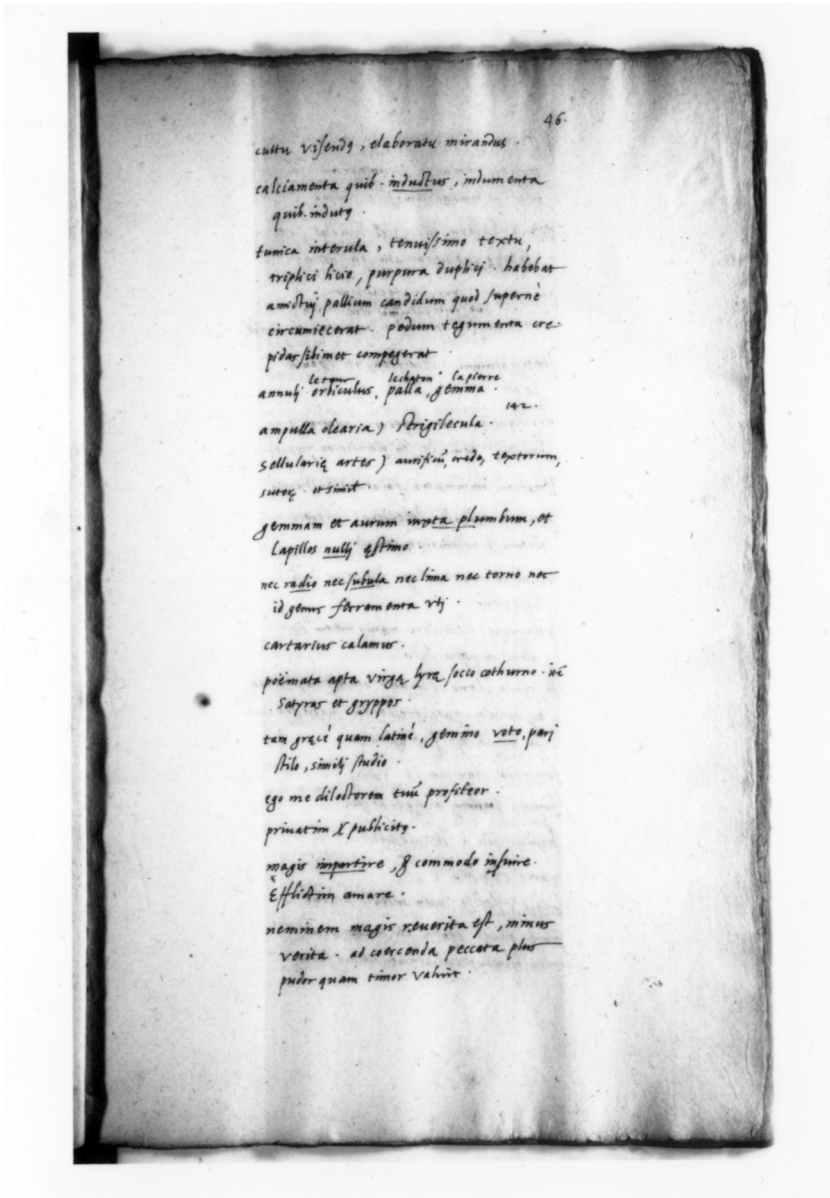 46.
cultu visendꝰ, elaboratu mirandus.
calciamenta quib. inductus, indumenta
quib. indutꝰ.
tunica interula, tenuissimo textu,
triplici licio, purpura duplici. habebat
amictuj pallium candidum quod supernè
circumiecerat. pedum tegumenta cre-
pidas sibimet compegerat.
le tour lechaton la pierre
annulj orbiculus, palla, gemma.
142.
ampulla olearia) strigilecula.
Sellularię artes) aurificū, credo, textorum,
sutorę. et simil.
gemmam et aurum iuxta plumbum, et
lapillos nullj ęstimo.
nec radio nec subula nec lima nec torno nec
id genus ferramenta vtj.
cartarius calamus.
poëmata apta virgę lyrę socco cothurno. itē
Satyras et gryppos.
tam gręcè quam latinè, gemino voto, parj
stilo, similj studio.
ego me dilectorem tuū profiteor.
priuatim χ publicitꝰ.
magis impertire, ꝙ commodo insuire.
Efflictim amare.
neminem magis reuerita est, minus
verita. ad coercenda peccata plus
pudor quam timor valuit.